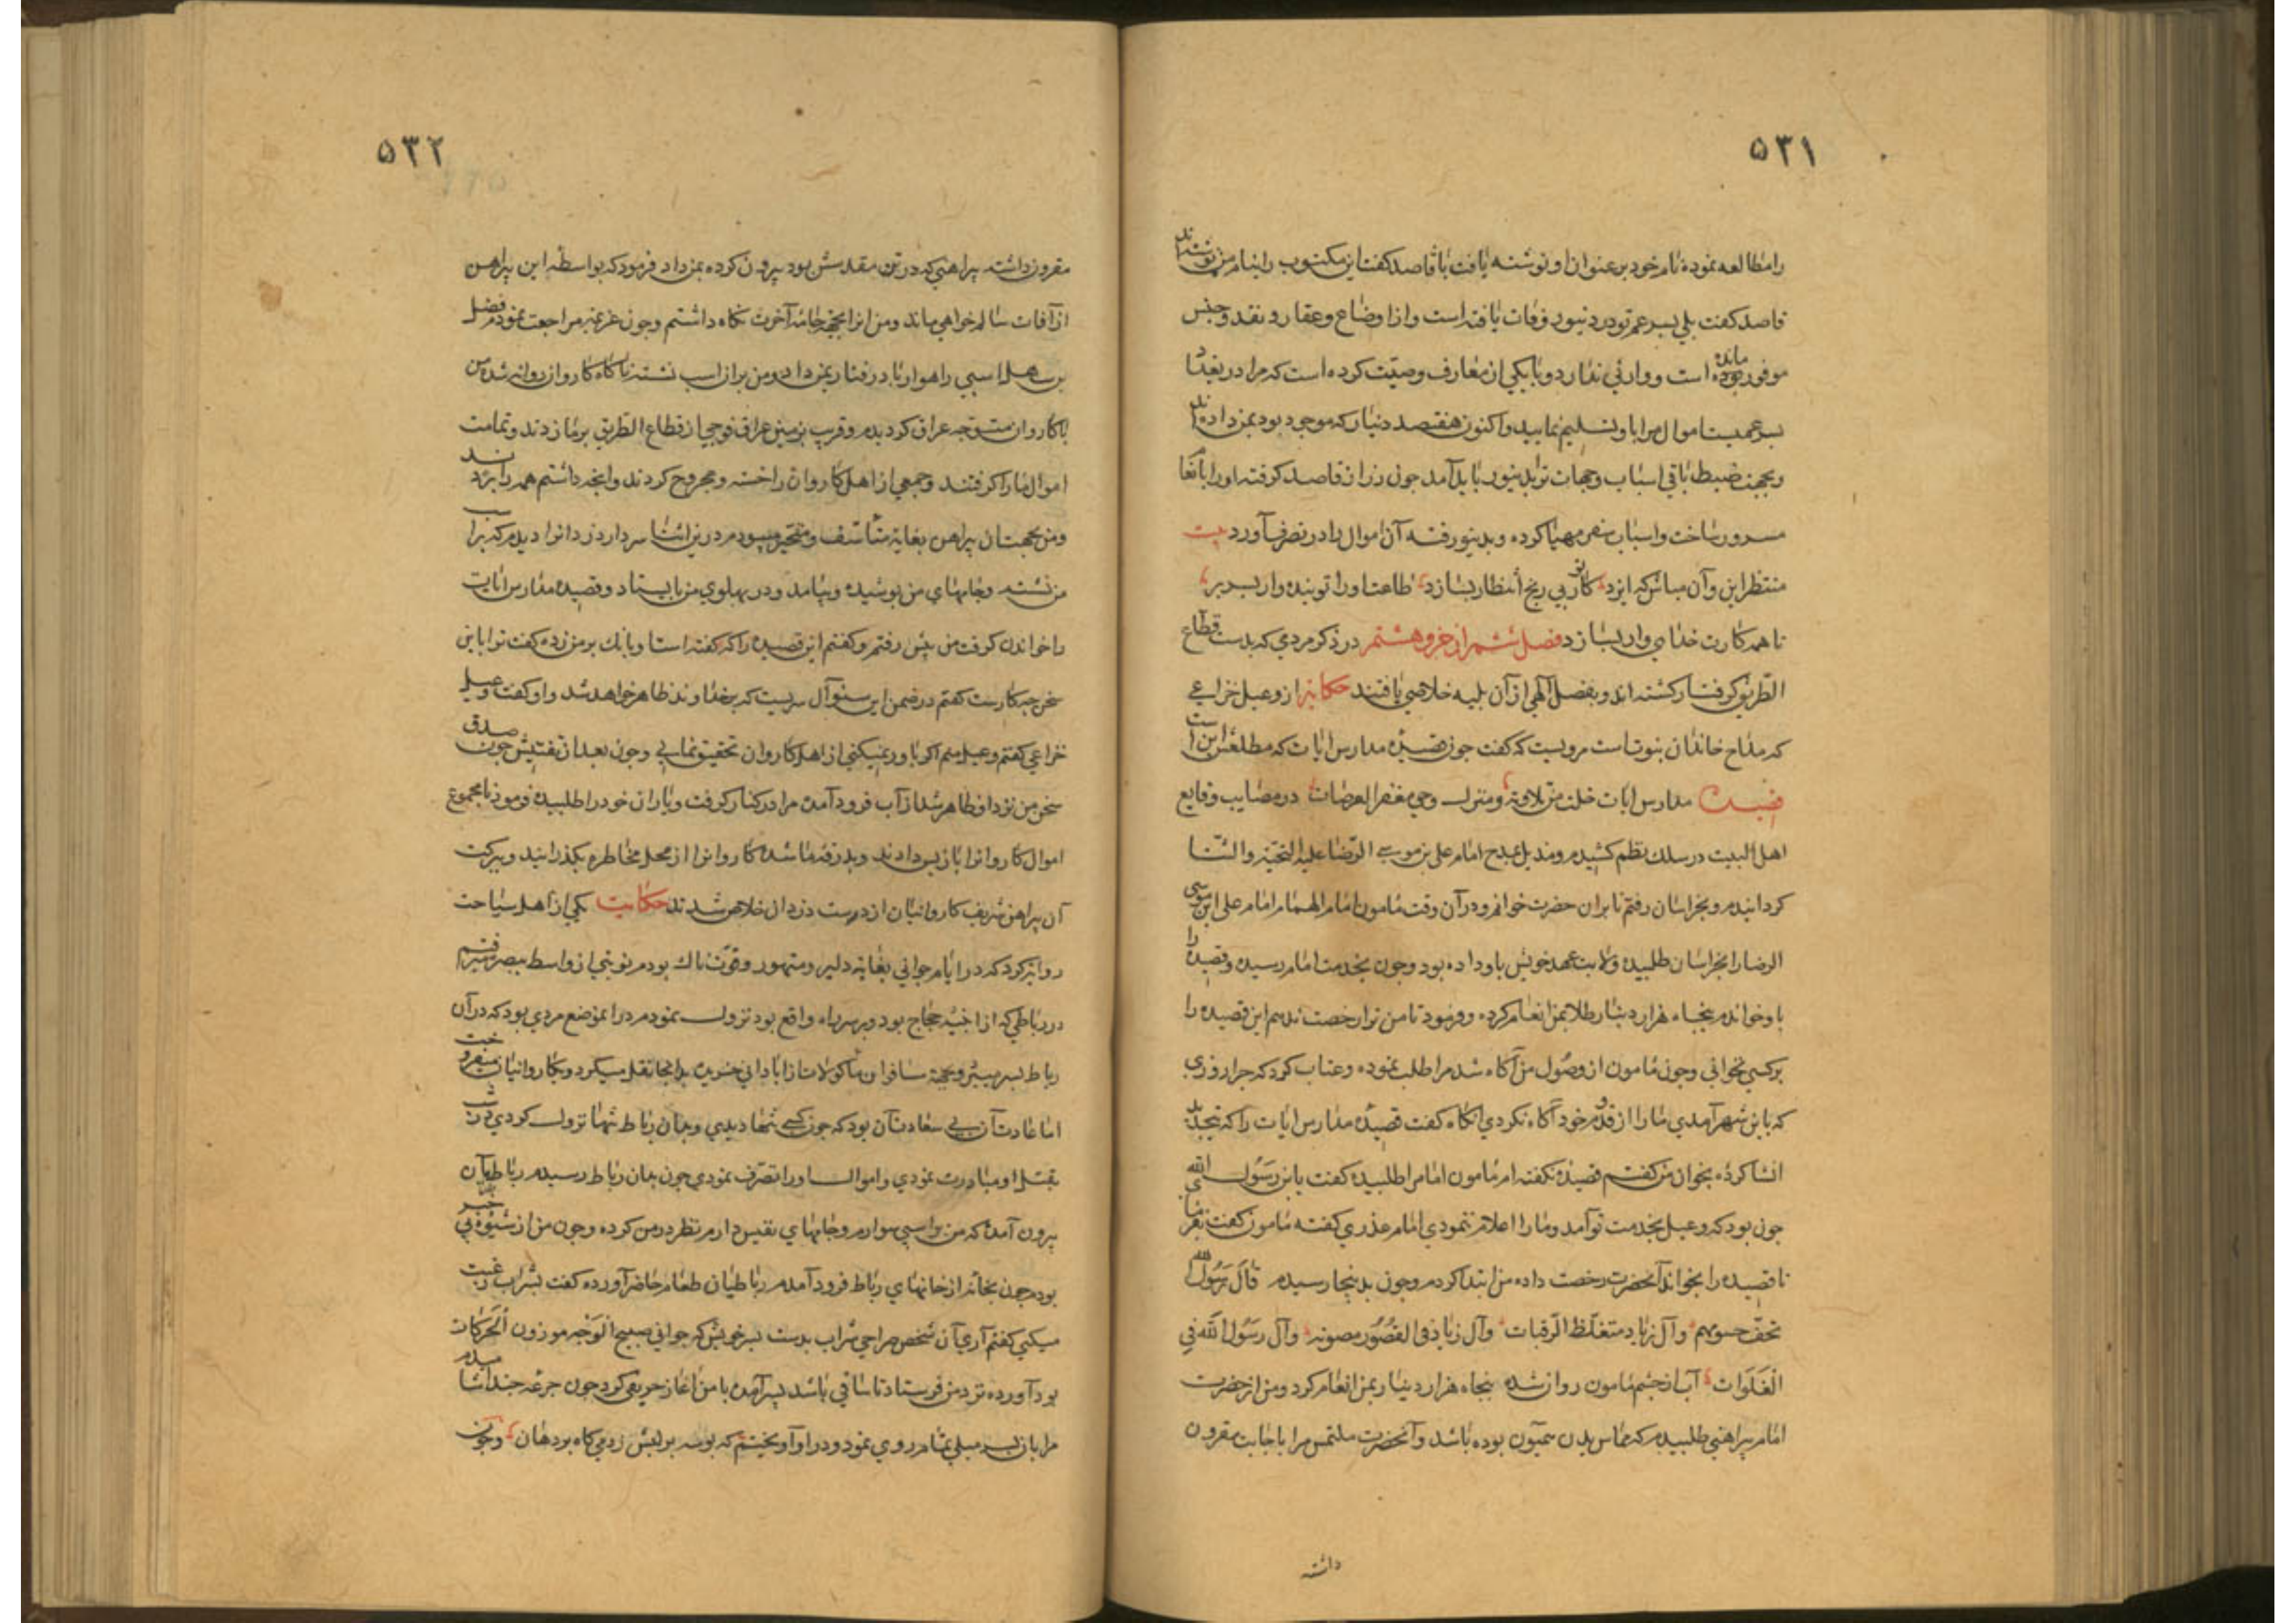 ۵۳۱
را مطالعه نموده نام خود بر عنوان او نوشته یافت با قاصد گفت این مکتوب را بنام من نوشته‌اند
قاصد گفت بلی پسر عم تو در دینور وفات یافته است و از اوضاع و عقار و نقد و جنس
موفور مانده است و وارثی ندارد و با یکی از معارف وصیت کرده است که مرا در بغداد
پسر عمیست اموال مرا باو تسلیم نمایید و اکنون هفتصد دینار که موجود بود بمن داده‌اند
و بجهت ضبط باقی اسباب و جهات تو بدینور باید آمد چون زر از قاصد گرفته او را بانعام
مسرور ساخت و اسباب سفر مهیا کرده و بدینور رفته آن اموال را در تصرف آورد بیت
منتظر این و آن مباش که ایزد کار تو بی رنج انتظار بسازد طاعت او را تو بنده وار بسر بر
تا همه کارت خدای وار بسازد فصل ششم از جزو هشتم در ذکر مردمی که بدست قطاع
الطریق گرفتار گشته اند و بفضل الهی از آن بلیه خلاصی یافتند حکایت از دعبل خزاعی
که مداح خاندان نبوت است مرویست که گفت چون قصیده مدارس ایات که مطلعش این است
قصیده مدارس ایات خلت من تلاوة ومنزل وحی مقفر العرصات در مصایب وقایع
اهل البیت در سلک نظم کشیدم و مذیل بمدح امام علی بن موسی الرضا علیه التحیة والثنا
گردانیدم و بخراسان رفتم تا بران حضرت خوانم و در آن وقت مامون امام الهمام امام علی ابن موسی
الرضا را بخراسان طلبیده ولایت عهد خویش باو داده بود و چون بخدمت امام رسیده و قصیده را
باو خواندم پنجاه هزار دینار طلا بمن انعام کرده و فرمود تا من ترا رخصت ندهم این قصیده را
بر کسی نخوانی و چون مامون از وصول من آگاه شد مرا طلب نموده و عتاب کرد که چرا روزی
که باین شهر آمدی ما را از قدوم خود آگاه نکردی آنگاه گفت قصیده مدارس ایات را که
انشا کرده بخوان من گفتم قصیده نگفته ام مامون امام را طلبیده گفت یابن رسول الله
چون بود که دعبل بخدمت تو آمد و ما را اعلام ننمودی امام عذری گفته مامون گفت
تا قصیده را بخواند آنحضرت رخصت داده من ابتدا کردم و چون بدینجا رسیدم قال رسول الله
نحف جسومهم وآل زیاد متغلظ الرقبات وآل زیاد فی القصور مصونه وآل رسول الله فی
الفلوات آب از چشم مامون روان شده پنجاه هزار دینار بمن انعام کرد و من از حضرت
امام پیراهنی طلبیدم که مماس بدن میمون بوده باشد و آنحضرت ملتمس مرا باجابت مقرون
داشته
۵۳۲
مقرون داشته پیراهنی که در تن مقدسش بود بیرون کرده بمن داد فرمود که بواسطه این پیراهن
از آفات سالم خواهی ماند و من انرا بجهت جامه آخرت نگاه داشتم و چون عزیمت مراجعت نمودم فضل
بن سهل اسپی راهوار باد رفتار بمن داد و من بر ان اسب نشسته ناگاه کاروان روانه شد من
با کاروان متوجه عراق گردیدم و قریب بزمین عراق فوجی از قطاع الطریق بر ما زدند و تمامت
اموال ما را گرفتند و جمعی از اهل کاروان را خسته و مجروح کردند و انچه داشتم همه را بردند
و من بجهت ان پیراهن بغایة متاسف و متحیر میبودم درین اثنا سردار دزدانرا دیدم که بر اسب
من نشسته و جامهای من پوشیده و بیامد و در پهلوی من بایستاد و قصیده مدارس ایات
را خواندن گرفت من پیش رفتم و گفتم این قصیده را که گفته است او بانک بر من زده گفت ترا باین
سخن چه کارست گفتم در ضمن این سئوال سریست که بر خداوند ظاهر خواهد شد و او گفت دعبل
خزاعی گفتم دعبل منم اگر باور نمیکنی از اهل کاروان تحقیق نمایی و چون بعد از تفتیش چون صدق
سخن من نزد او ظاهر شد از اسب فرود آمده مرا در کنار گرفت و یاران خود را طلبیده فرمود تا مجموع
اموال کاروانرا باز پس دادند و بدرقه ما شده کاروانرا از محل مخاطره بگذرانید و ببرکت
آن پیراهن شریف کاروانیان از دست دزدان خلاص شدند حکایت یکی از اهل سیاحت
روایة کرد که در ایام جوانی بغایة دلیر و متهور و قوت ناک بودم نوبتی از واسط ببصره میرفتم
در رباطی که از ابنیه حجاج بود و بر سر راه واقع بود نزول نمودم در انموضع مردی بود که در آن
رباط بسر میبرد و بجهة مسافران ماکولات از آبادانی خریده بدانجا نقل میکرد و بکاروانیان میفروخت
اما عادت آن بی سعادت آن بود که چون کسی تنها دیدی و بدان رباط تنها نزول کردی شب
بقتل او مبادرت نمودی و اموال او را تصرف نمودی چون بدان رباط رسیدم رباطیان
بیرون آمده که من بر اسبی سوارم و جامهای نفیس دارم نظر در من کرده و چون من از شیوه او بی خبر
بودم چون بخانه از خانهای رباط فرود آمدم رباطیان طعام حاضر آورده گفت بشراب رغبت
میکنی گفتم آری آن شخص صراحی شراب بدست پسر خویش که جوانی صبیح الوجه موزون الحرکات
بود آورده نزد من فرستاد تا ساقی باشد پسر آمده با من آغاز حریفی کرد چون جرعه چند
مرا بان پسر میلی تمام روی نمود و در او آویختم گه بوسه بر لبش زدمی گاه بر دهان و چون